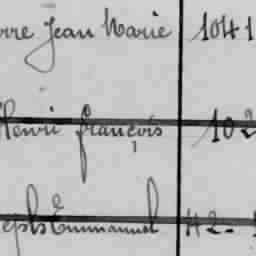 rre Jean Marie 1041
Henri françois 102
eph Emmanuel 42-